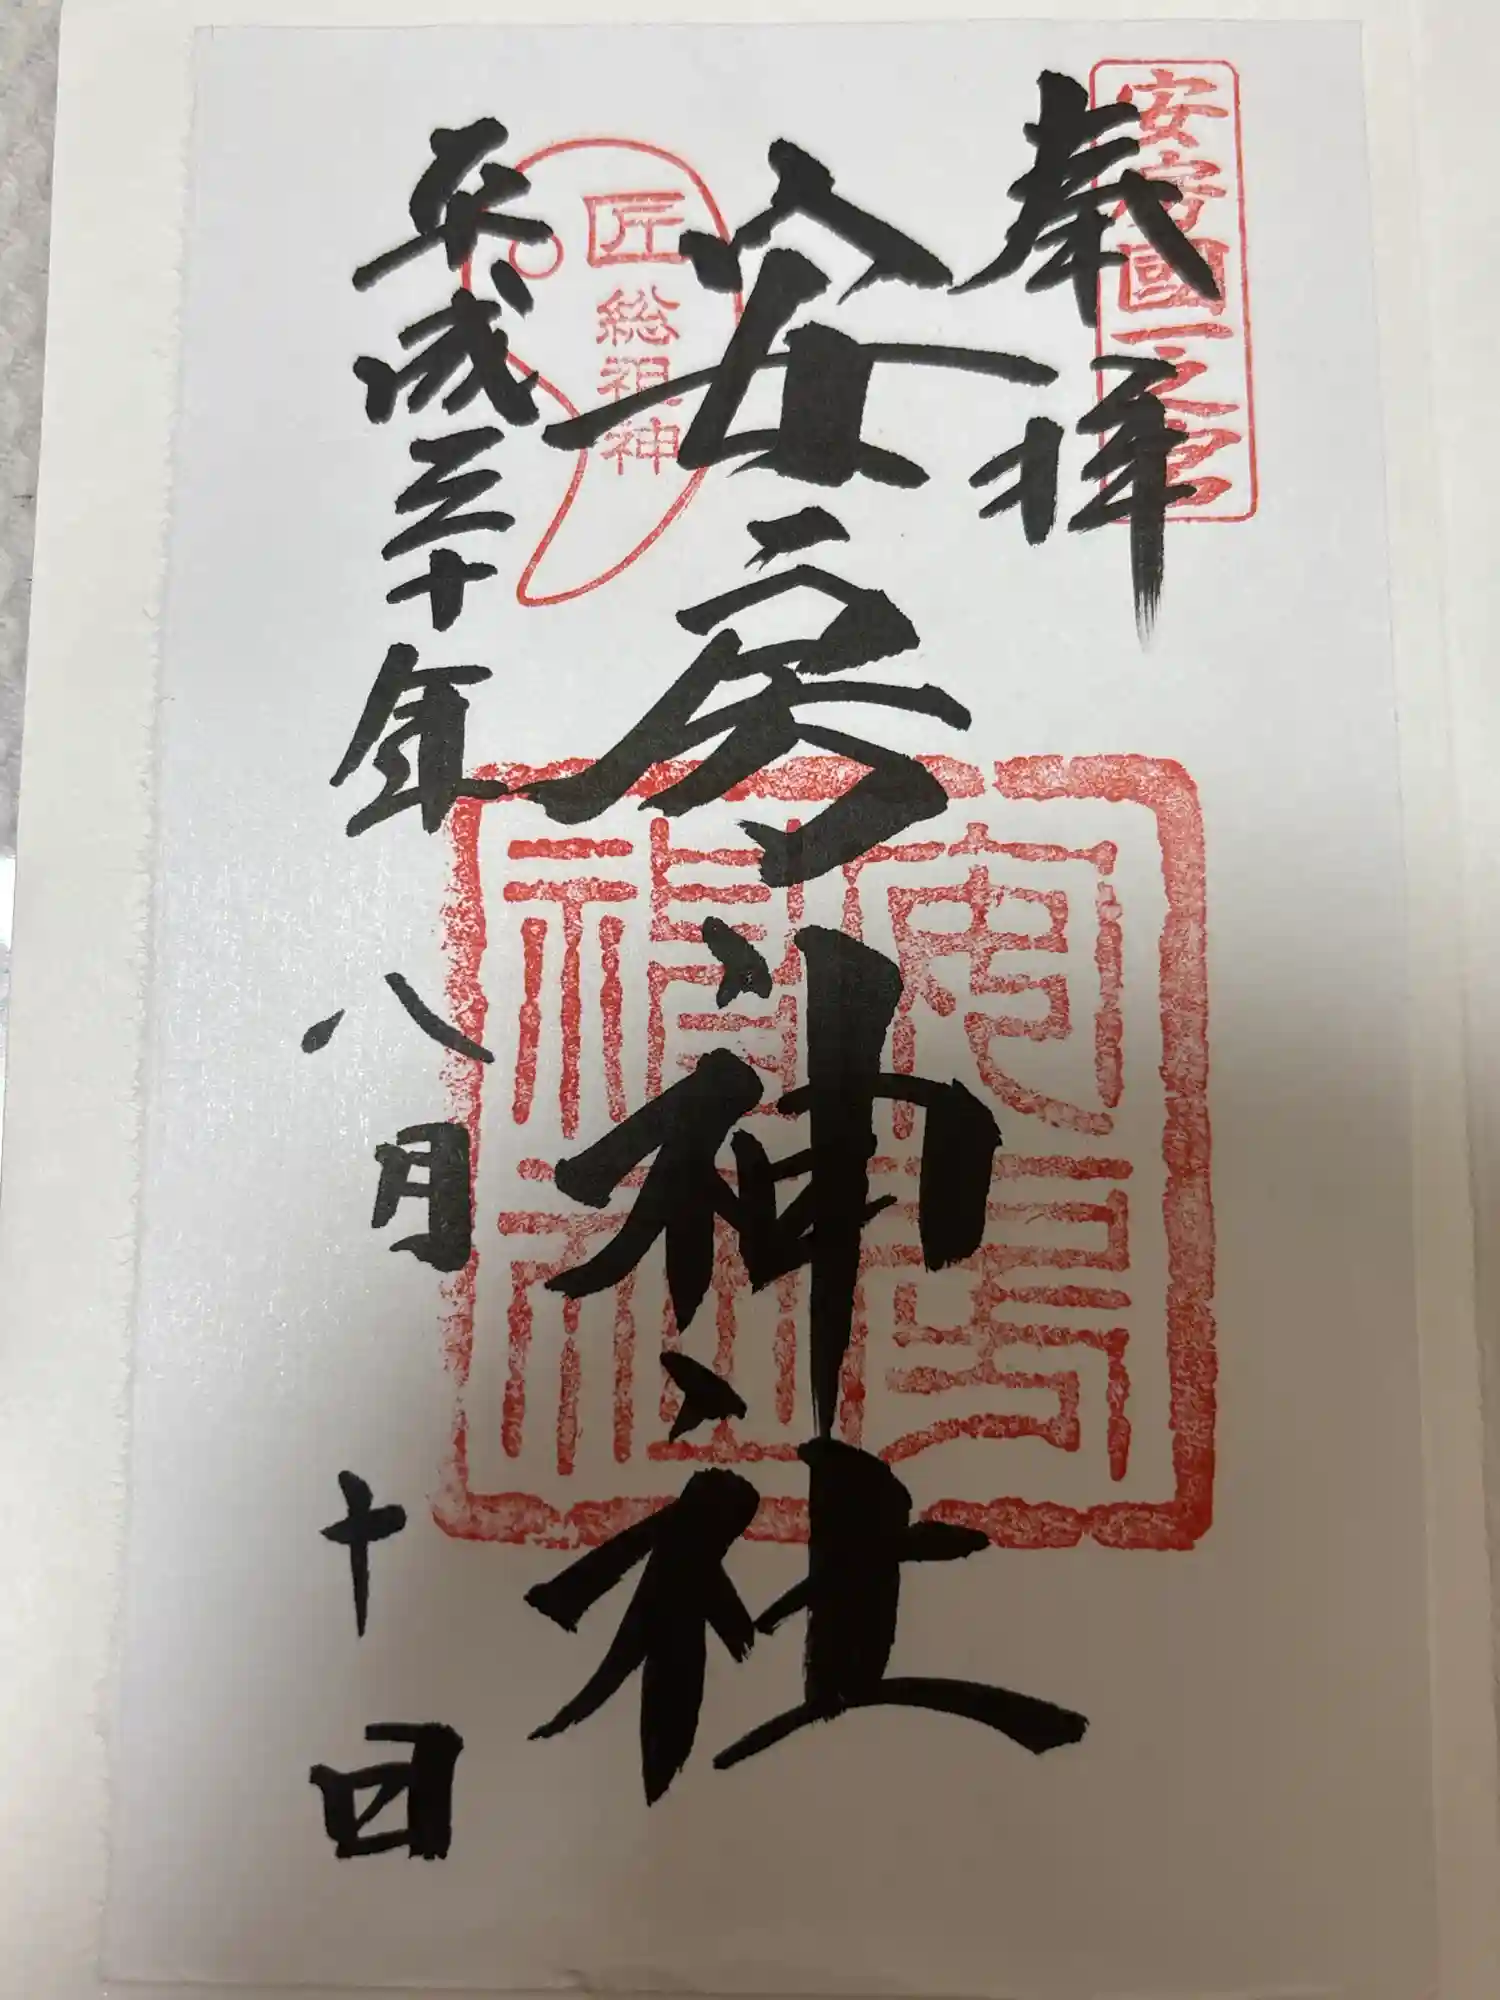 安房國一之宮
奉拝
安房神社
匠
総祖神
安房神社
平成三十年八月十日